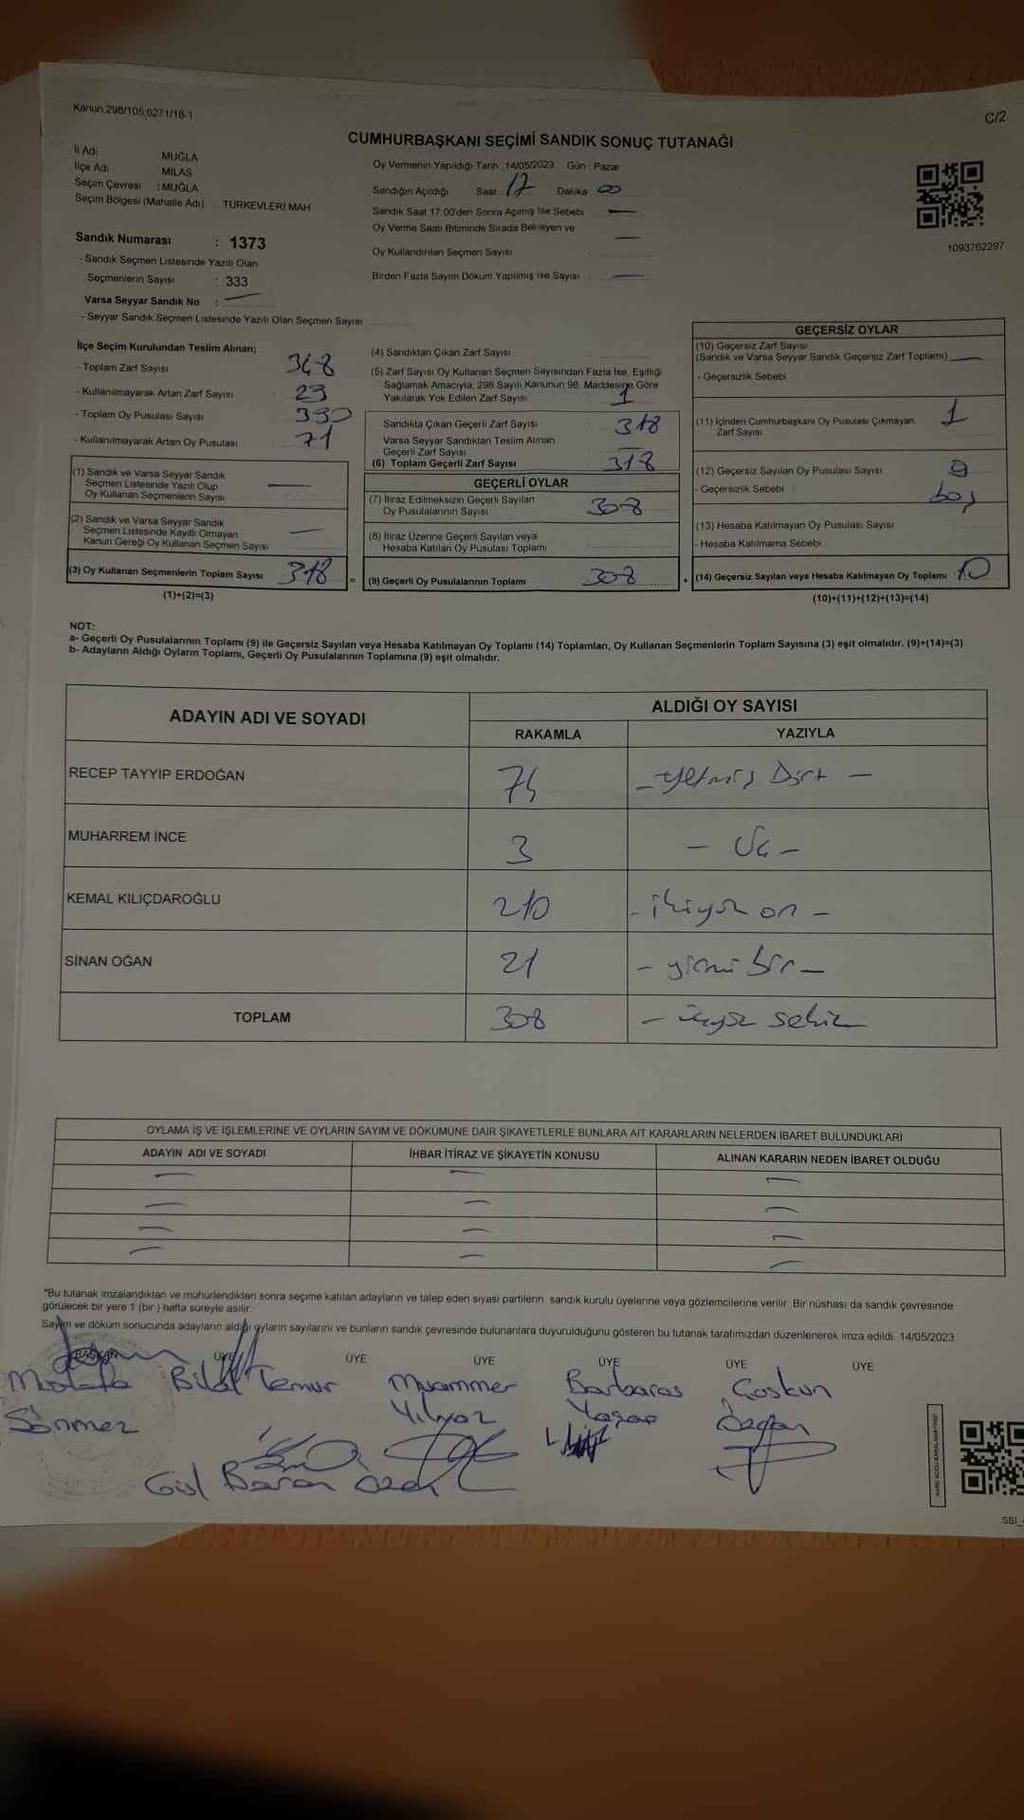 Kanun 298/105,6271/18-1
C/2
CUMHURBAŞKANI SEÇİMİ SANDIK SONUÇ TUTANAĞI
İl Adı MUĞLA
İlçe Adı MİLAS
Seçim Çevresi : MUĞLA
Seçim Bölgesi (Mahalle Adı) TÜRKEVLERİ MAH
Sandık Numarası : 1373
- Sandık Seçmen Listesinde Yazılı Olan
Seçmenlerin Sayısı : 333
Varsa Seyyar Sandık No : —
- Seyyar Sandık Seçmen Listesinde Yazılı Olan Seçmen Sayısı
Oy Vermenin Yapıldığı Tarih 14/05/2023 Gün : Pazar
Sandığın Açıldığı Saat 17 Dakika 00
Sandık Saat 17:00'den Sonra Açımış İse Sebebi —
Oy Verme Saati Bitiminde Sırada Bekleyen ve —
Oy Kullandırılan Seçmen Sayısı
Birden Fazla Sayım Döküm Yapılmış ise Sayısı —
1093762297
İlçe Seçim Kurulundan Teslim Alınan;
- Toplam Zarf Sayısı 348
- Kullanılmayarak Artan Zarf Sayısı 23
- Toplam Oy Pusulası Sayısı 390
- Kullanılmayarak Artan Oy Pusulası 71
(1) Sandık ve Varsa Seyyar Sandık
Seçmen Listesinde Yazılı Olup
Oy Kullanan Seçmenlerin Sayısı —
(2) Sandık ve Varsa Seyyar Sandık
Seçmen Listesinde Kayıtlı Olmayan
Kanun Gereği Oy Kullanan Seçmen Sayısı —
(3) Oy Kullanan Seçmenlerin Toplam Sayısı 318 =
(1)+(2)=(3)
(4) Sandıktan Çıkan Zarf Sayısı
(5) Zarf Sayısı Oy Kullanan Seçmen Sayısından Fazla İse, Eşitliği
Sağlamak Amacıyla, 298 Sayılı Kanunun 98. Maddesine Göre
Yakılarak Yok Edilen Zarf Sayısı 1
Sandıkta Çıkan Geçerli Zarf Sayısı 318
Varsa Seyyar Sandıktan Teslim Alınan
Geçerli Zarf Sayısı
(6) Toplam Geçerli Zarf Sayısı 318
GEÇERLİ OYLAR
(7) İtiraz Edilmeksizin Geçerli Sayılan
Oy Pusulalarının Sayısı 308
(8) İtiraz Üzerine Geçerli Sayılan veya
Hesaba Katılan Oy Pusulası Toplamı
(9) Geçerli Oy Pusulalarının Toplamı 308 +
GEÇERSİZ OYLAR
(10) Geçersiz Zarf Sayısı
(Sandık ve Varsa Seyyar Sandık Geçersiz Zarf Toplamı) —
- Geçersizlik Sebebi
(11) İçinden Cumhurbaşkanı Oy Pusulası Çıkmayan
Zarf Sayısı 1
(12) Geçersiz Sayılan Oy Pusulası Sayısı 9
- Geçersizlik Sebebi boş
(13) Hesaba Katılmayan Oy Pusulası Sayısı
- Hesaba Katılmama Sebebi
(14) Geçersiz Sayılan veya Hesaba Katılmayan Oy Toplamı 10
(10)+(11)+(12)+(13)=(14)
NOT:
a- Geçerli Oy Pusulalarının Toplamı (9) ile Geçersiz Sayılan veya Hesaba Katılmayan Oy Toplamı (14) Toplamları, Oy Kullanan Seçmenlerin Toplam Sayısına (3) eşit olmalıdır. (9)+(14)=(3)
b- Adayların Aldığı Oyların Toplamı, Geçerli Oy Pusulalarının Toplamına (9) eşit olmalıdır.
ADAYIN ADI VE SOYADI ALDIĞI OY SAYISI
RAKAMLA YAZIYLA
RECEP TAYYİP ERDOĞAN 74 - Yetmiş Dört -
MUHARREM İNCE 3 - Üç -
KEMAL KILIÇDAROĞLU 210 - ikiyüz on -
SİNAN OĞAN 21 - yirmi bir -
TOPLAM 308 - üçyüz sekiz
OYLAMA İŞ VE İŞLEMLERİNE VE OYLARIN SAYIM VE DÖKÜMÜNE DAİR ŞİKAYETLERLE BUNLARA AİT KARARLARIN NELERDEN İBARET BULUNDUKLARI
ADAYIN ADI VE SOYADI İHBAR İTİRAZ VE ŞİKAYETİN KONUSU ALINAN KARARIN NEDEN İBARET OLDUĞU
— — —
— — —
— — —
— — —
"Bu tutanak imzalandıktan ve mühürlendikten sonra seçime katılan adayların ve talep eden siyasi partilerin sandık kurulu üyelerine veya gözlemcilerine verilir. Bir nüshası da sandık çevresinde
görülecek bir yere 1 (bir) hafta süreyle asılır.
Sayım ve döküm sonucunda adayların aldığı oyların sayılarını ve bunların sandık çevresinde bulunanlara duyurulduğunu gösteren bu tutanak tarafımızdan düzenlenerek imza edildi. 14/05/2023
BAŞKAN ÜYE ÜYE ÜYE ÜYE ÜYE ÜYE
Mustafa Bilal Temur Muammer Barbaros Coşkun
Sönmez Yılmaz Yaşar
Gül Baran
SSI_